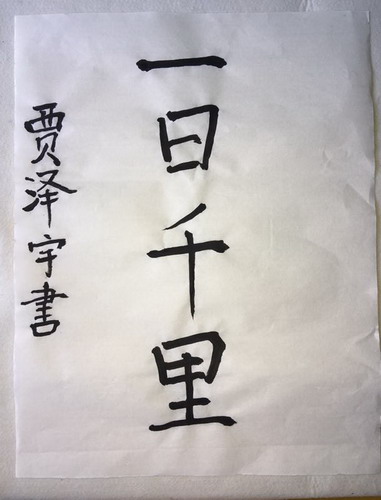 一日千里
贾泽宇書